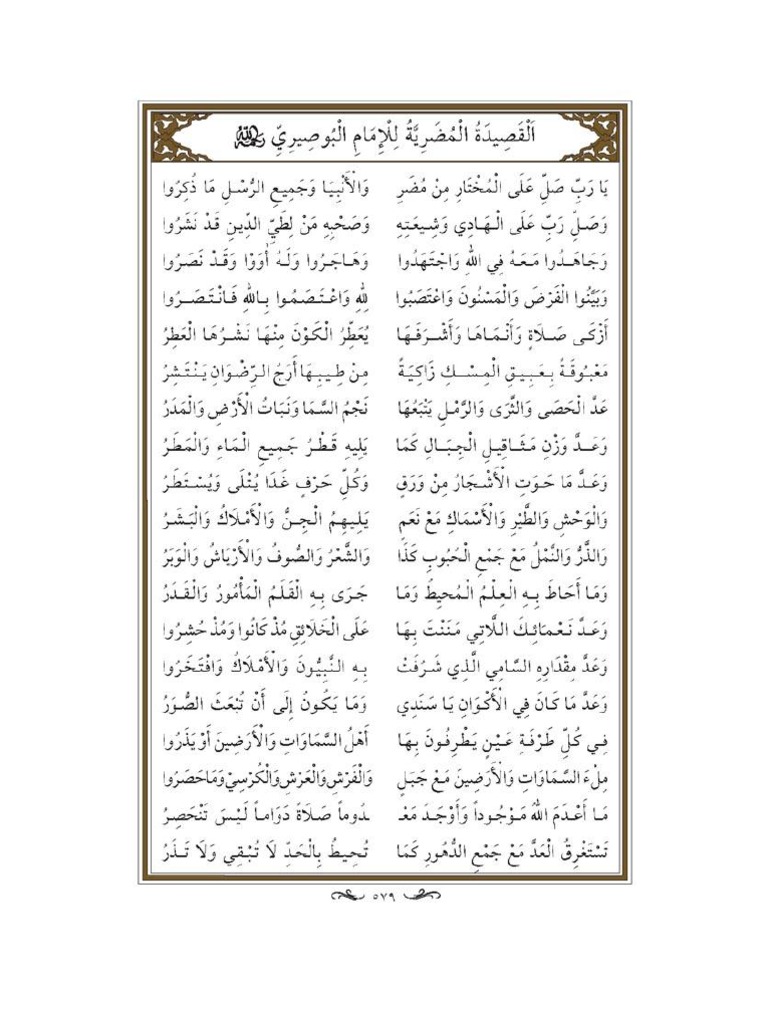 اَلْقَصِيدَةُ الْمُضَرِيَّةُ لِلْإِمَامِ الْبُوصِيرِيِّ رَحِمَهُ اللهُ
يَا رَبِّ صَلِّ عَلَى الْمُخْتَارِ مِنْ مُضَرِ وَالْأَنْبِيَا وَجَمِيعِ الرُّسْلِ مَا ذُكِرُوا
وَصَلِّ رَبِّ عَلَى الْهَادِي وَشِيعَتِهِ وَصَحْبِهِ مَنْ لِطَيِّ الدِّينِ قَدْ نَشَرُوا
وَجَاهَدُوا مَعَهُ فِي اللهِ وَاجْتَهَدُوا وَهَاجَرُوا وَلَهُ أٰوَوْا وَقَدْ نَصَرُوا
وَبَيَّنُوا الْفَرْضَ وَالْمَسْنُونَ وَاعْتَصَبُوا لِلهِ وَاعْتَصَمُوا بِاللهِ فَانْتَصَرُوا
أَزْكَى صَلَاةٍ وَأَنْمَاهَا وَأَشْرَفَهَا يُعَطِّرُ الْكَوْنَ مِنْهَا نَشْرُهَا الْعَطِرُ
مَعْبُوقَةً بِعَبِيقِ الْمِسْكِ زَاكِيَةً مِنْ طِيبِهَا أَرَجُ الرِّضْوَانِ يَنْتَشِرُ
عَدَّ الْحَصَى وَالثَّرَى وَالرَّمْلِ يَتْبَعُهَا نَجْمُ السَّمَا وَنَبَاتُ الْأَرْضِ وَالْمَدَرُ
وَعَدَّ وَزْنِ مَثَاقِيلِ الْجِبَالِ كَمَا يَلِيهِ قَطْرُ جَمِيعِ الْمَاءِ وَالْمَطَرُ
وَعَدَّ مَا حَوَتِ الْأَشْجَارُ مِنْ وَرَقٍ وَكُلِّ حَرْفٍ غَدَا يُتْلَى وَيُسْتَطَرُ
وَالْوَحْشِ وَالطَّيْرِ وَالْأَسْمَاكِ مَعْ نَعَمٍ يَلِيهِمُ الْجِنُّ وَالْأَمْلَاكُ وَالْبَشَرُ
وَالذَّرُّ وَالنَّمْلُ مَعْ جَمْعِ الْحُبُوبِ كَذَا وَالشَّعْرُ وَالصُّوفُ وَالْأَرْيَاشُ وَالْوَبَرُ
وَمَا أَحَاطَ بِهِ الْعِلْمُ الْمُحِيطُ وَمَا جَرَى بِهِ الْقَلَمُ الْمَأْمُورُ وَالْقَدَرُ
وَعَدَّ نَعْمَائِكَ اللَّاتِي مَنَنْتَ بِهَا عَلَى الْخَلَائِقِ مُذْ كَانُوا وَمُذْ حُشِرُوا
وَعَدَّ مِقْدَارِهِ السَّامِي الَّذِي شَرُفَتْ بِهِ النَّبِيُّونَ وَالْأَمْلَاكُ وَافْتَخَرُوا
وَعَدَّ مَا كَانَ فِي الْأَكْوَانِ يَا سَنَدِي وَمَا يَكُونُ إِلَى أَنْ تُبْعَثَ الصُّوَرُ
فِي كُلِّ طَرْفَةِ عَيْنٍ يَطْرِفُونَ بِهَا أَهْلُ السَّمَاوَاتِ وَالْأَرَضِينَ أَوْ يَذَرُوا
مِلْءَ السَّمَاوَاتِ وَالْأَرَضِينَ مَعْ جَبَلٍ وَالْفَرْشِ وَالْعَرْشِ وَالْكُرْسِيْ وَمَا حَصَرُوا
مَا أَعْدَمَ اللهُ مَوْجُوداً وَأَوْجَدَ مَعْـ ـدُوماً صَلَاةً دَوَاماً لَيْسَ تَنْحَصِرُ
تَسْتَغْرِقُ الْعَدَّ مَعْ جَمْعِ الدُّهُورِ كَمَا تُحِيطُ بِالْحَدِّ لَا تُبْقِي وَلَا تَذَرُ
٥٧٩